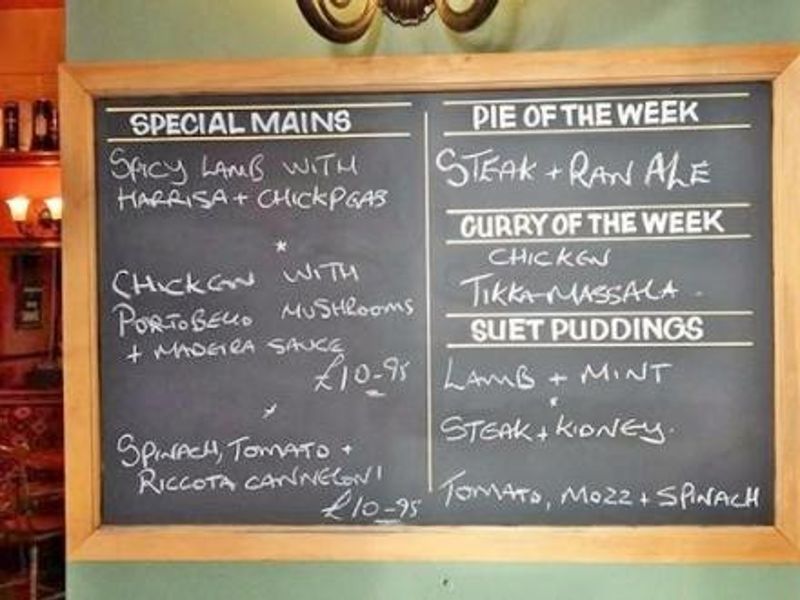 SPECIAL MAINS
SPICY LAMB WITH
HARRISA + CHICKPEAS
*
CHICKEN WITH
PORTOBELLO MUSHROOMS
+ MADEIRA SAUCE
£10-95
*
SPINACH, TOMATO +
RICCOTA CANNELONI
£10-95
PIE OF THE WEEK
STEAK + RAW ALE
CURRY OF THE WEEK
CHICKEN
TIKKA-MASSALA.
SUET PUDDINGS
LAMB + MINT
*
STEAK + KIDNEY.
TOMATO, MOZZ + SPINACH